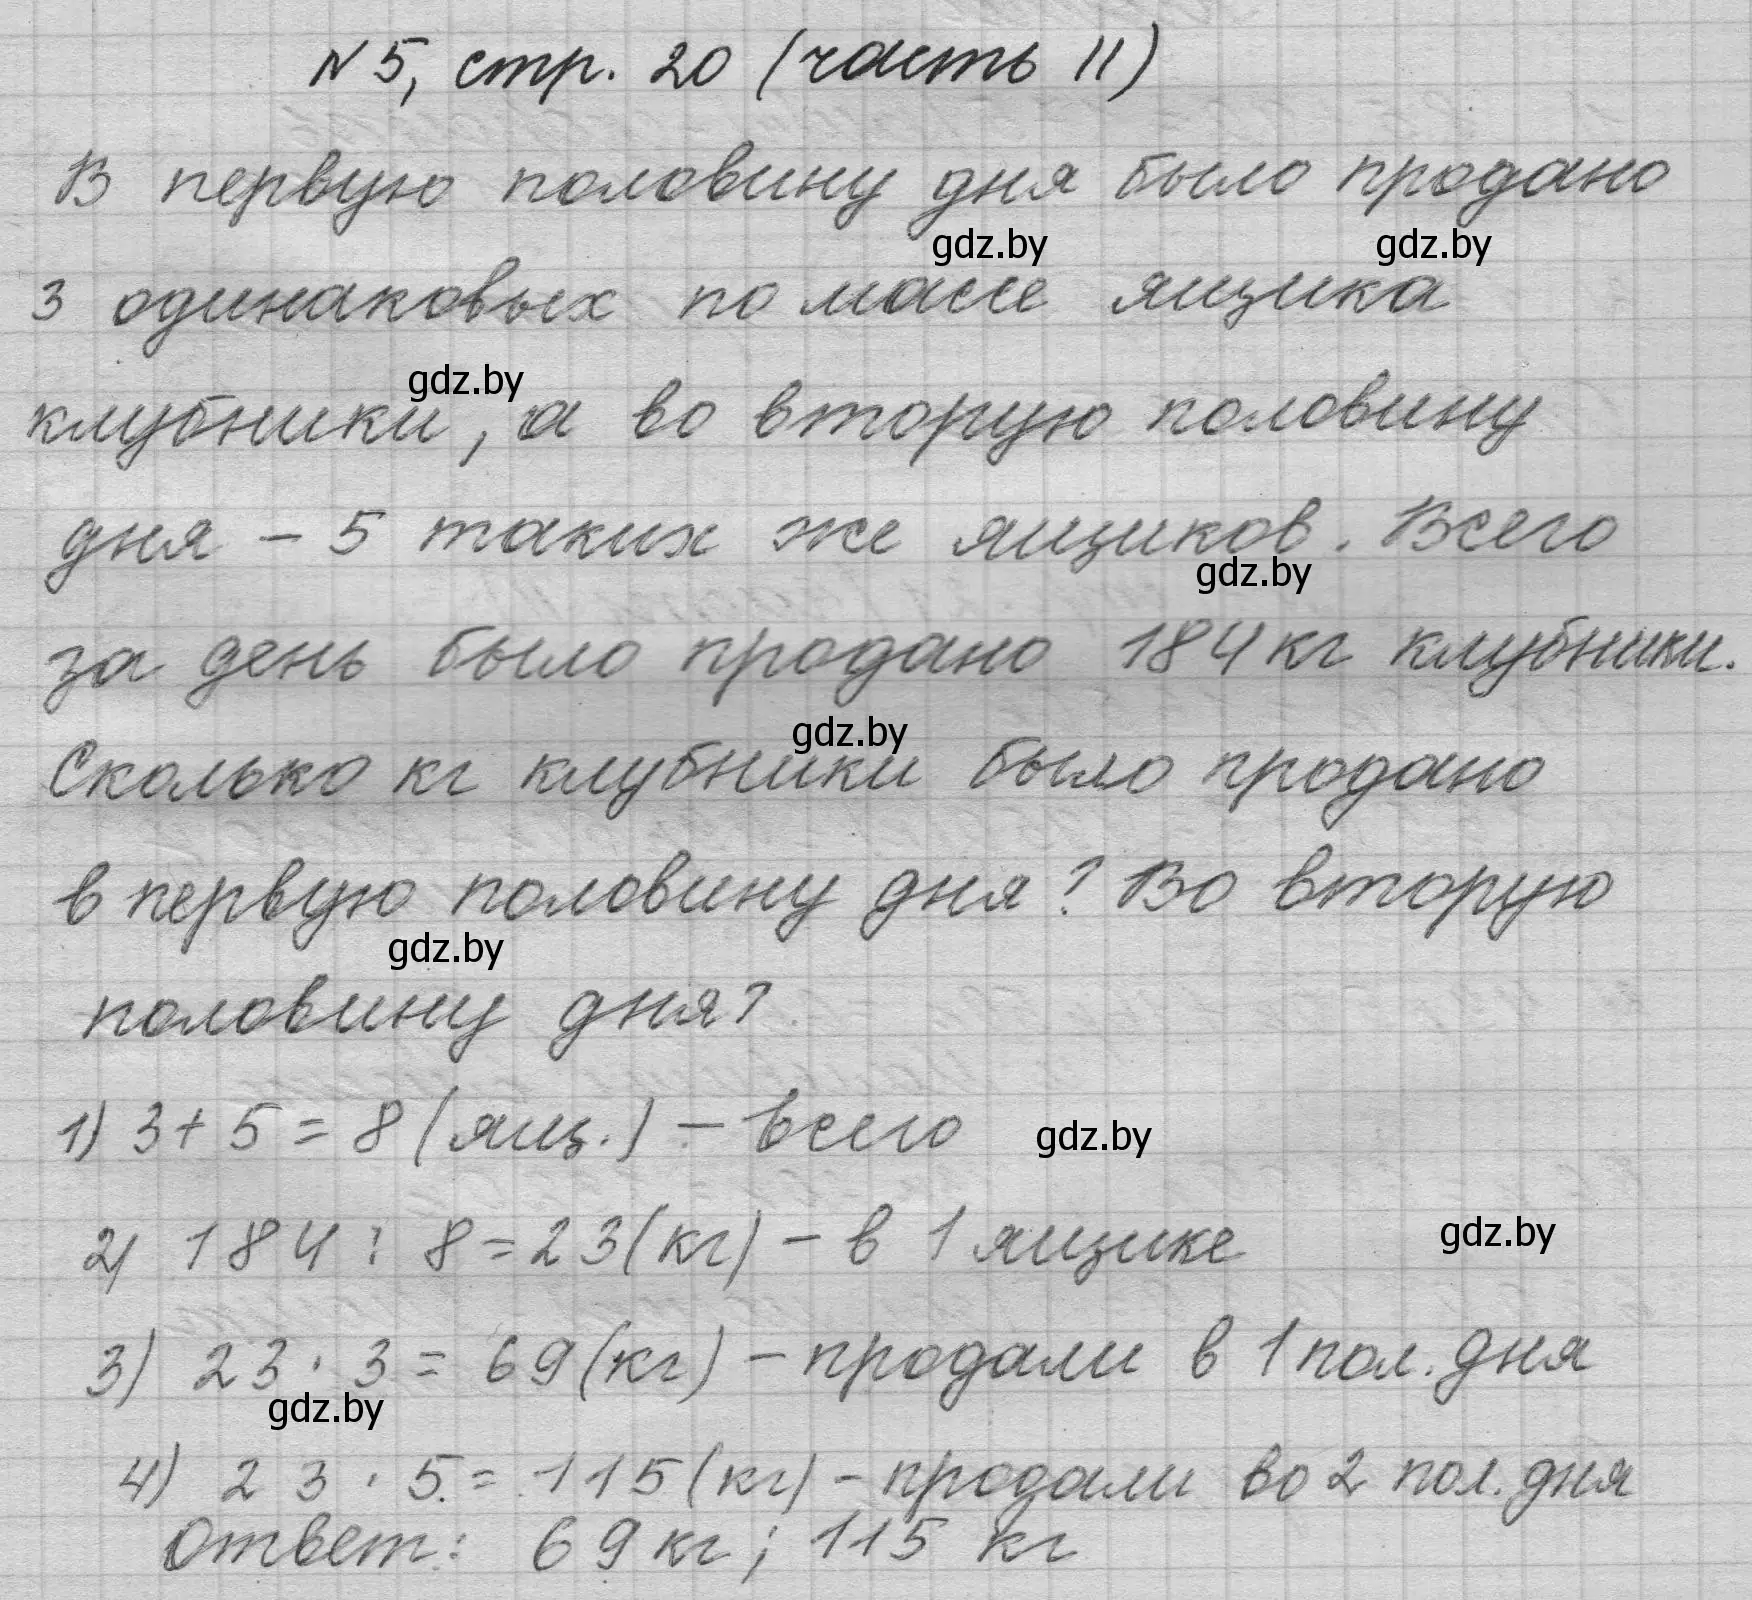 N 5, стр. 20 (часть II)
В первую половину дня было продано
gdz.by gdz.by
3 одинаковых по массе ящика
gdz.by
клубники, а во вторую половину
дня - 5 таких же ящиков. Всего
gdz.by
за день было продано 184 кг клубники.
gdz.by
Сколько кг клубники было продано
в первую половину дня? Во вторую
gdz.by
половину дня?
1) 3 + 5 = 8 (ящ.) - всего gdz.by
2) 184 : 8 = 23 (кг) - в 1 ящике gdz.by
3) 23 · 3 = 69 (кг) - продали в 1 пол. дня
gdz.by
4) 23 · 5 = 115 (кг) - продали во 2 пол. дня
Ответ: 69 кг; 115 кг